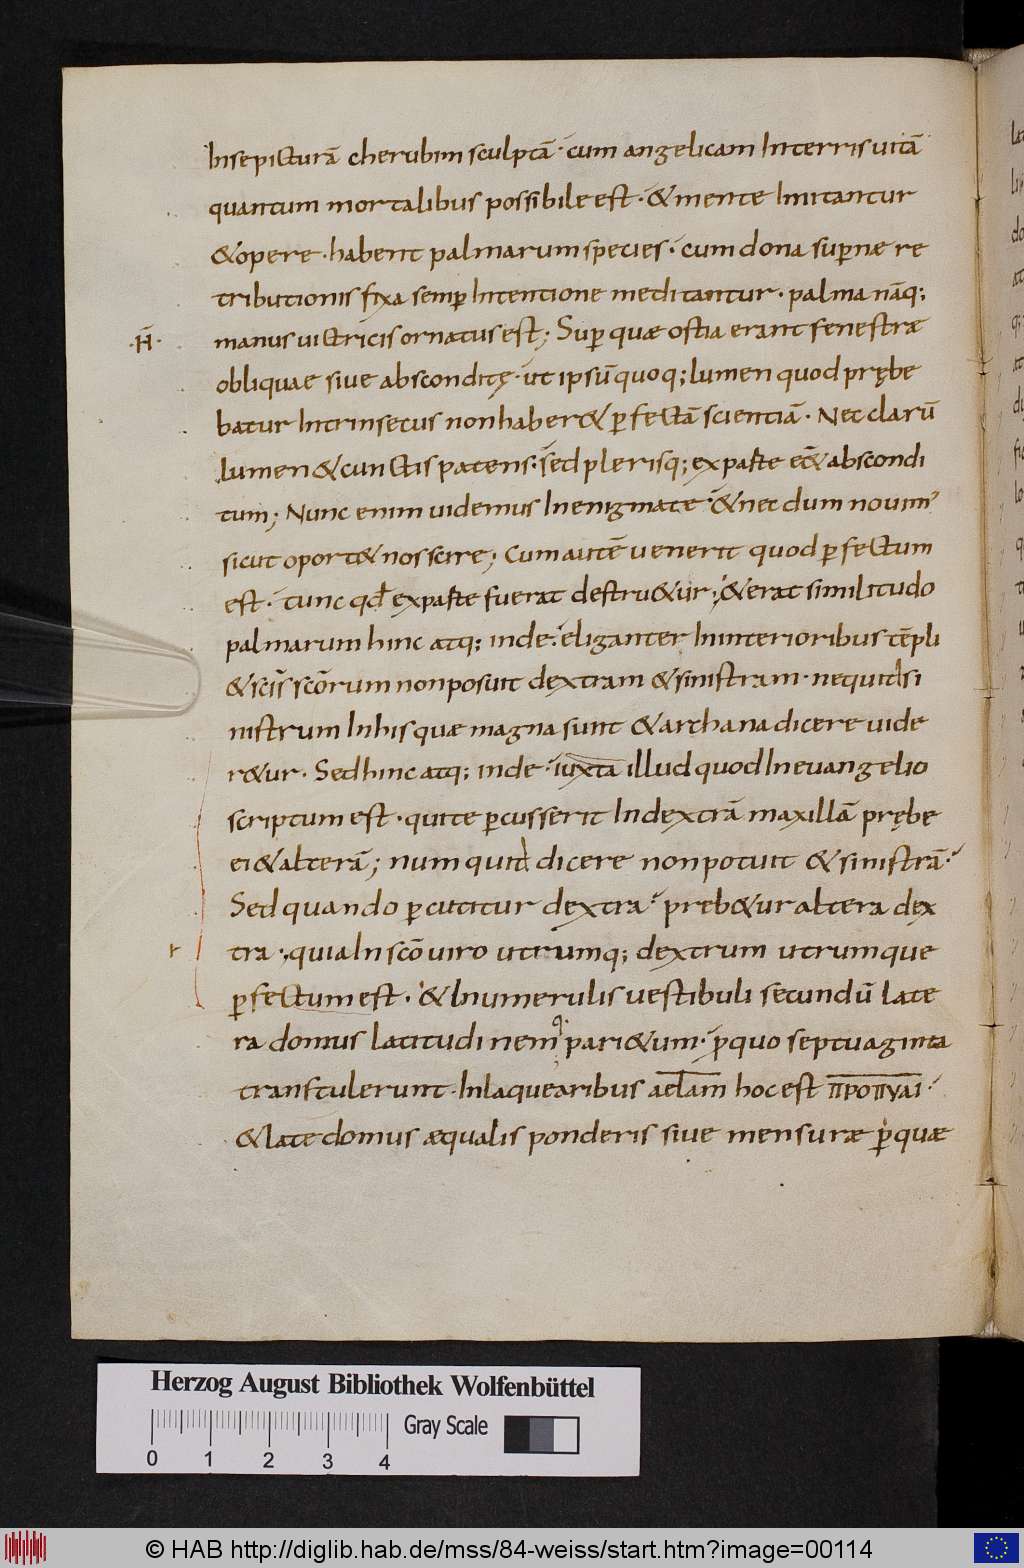 Insepicturā cherubim sculptā· cum angelicam Interris uitā
quantum mortalibus possibile est· &mente Imitantur
&opere· habent palmarum species· cum dona supernae re
tributionis fixa semp Intentione meditantur· palma nāq;
·H̄· manus uictricis ornatus est; Sup quae ostia erant fenestrae
obliquae siue absconditę· ut ipsū quoq; lumen quod prębe
batur Intrinsecus non haber& pfectā scientiā· Nec clarū
lumen &cunctis patens· sed plerisq; exparte e& abscondi
tum; Nunc enim uidemus Inenigmate· &necdum nouim᾽
sicut oport& nos scire; Cum autē uenerit quod pfectum
est· tunc qđ exparte fuerat destru&ur; &erat similitudo
palmarum hinc atq; inde· eliganter Ininterioribus tēpli
&scīs scōrum non posuit dextram &sinistram· nequid si
nistrum Inhis quae magna sunt &archana dicere uide
r&ur· Sed hinc atq; inde· iuxta illud quod Ineuangelio
scriptum est· quite pcusserit Indextrā maxillā prębę
ei &alterā; numquid dicere non potuit &sinistrā·
Sed quando pcutitur dextra preb&ur altera dex
r tra· quia Inscō uiro utrumq; dextrum utrumque
pfectum est· &Inumerulis uestibuli secundū late
ra domus latitudinem pari&um· p quo septuaginta
transtulerunt· Inlaquearibus aelam hoc est προπυαι·
&late domus aequalis ponderis siue mensurae p quae
Herzog August Bibliothek Wolfenbüttel
Gray Scale
0 1 2 3 4
© HAB http://diglib.hab.de/mss/84-weiss/start.htm?image=00114